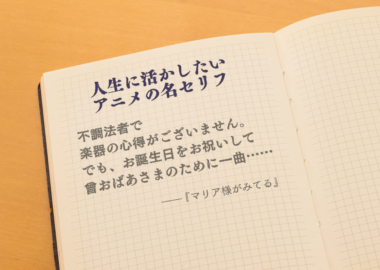 人生に活かしたい
アニメの名セリフ
不調法者で
楽器の心得がございません。
でも、お誕生日をお祝いして
曾おばあさまのために一曲……
──『マリア様がみてる』